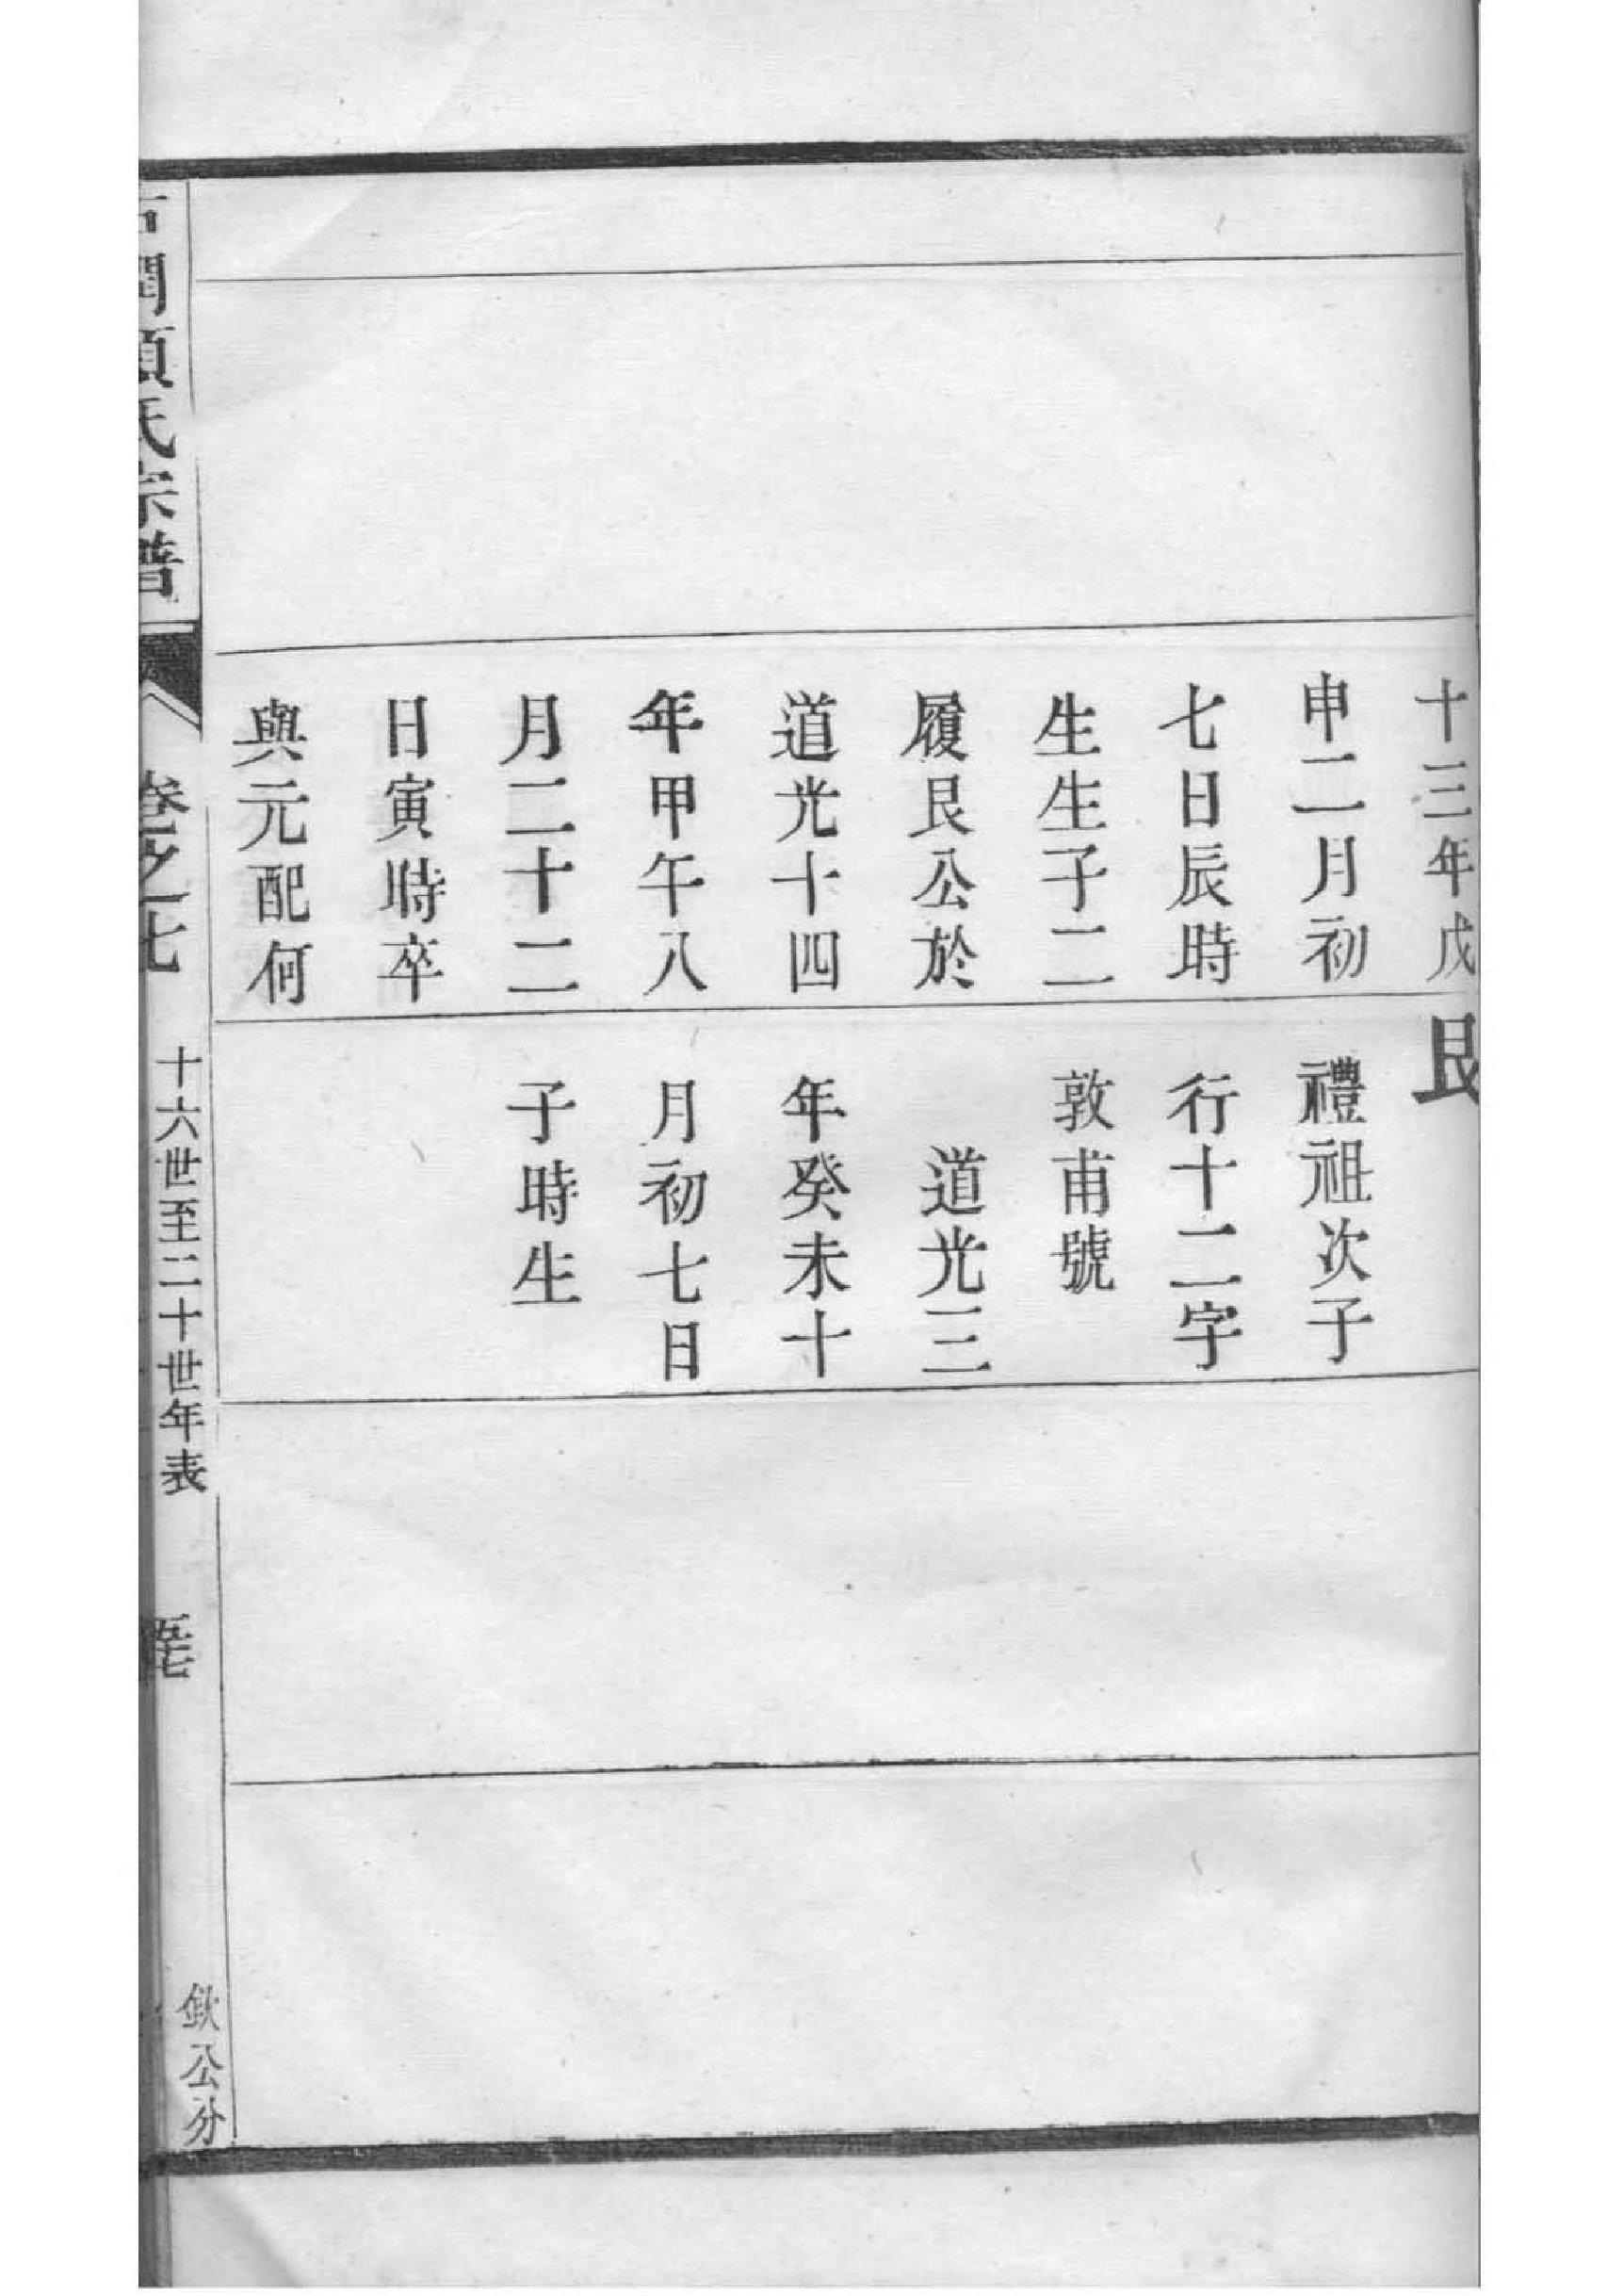 十三年戊
申二月初
七日辰時
生生子二
履艮公於
道光十四
年甲午八
月二十二
日寅時卒
與元配何
艮
禮祖次子
行十二字
敦甫號
道光三
年癸未十
月初七日
子時生
氏宗譜
卷之七
十六世至二十世年表
欽公分